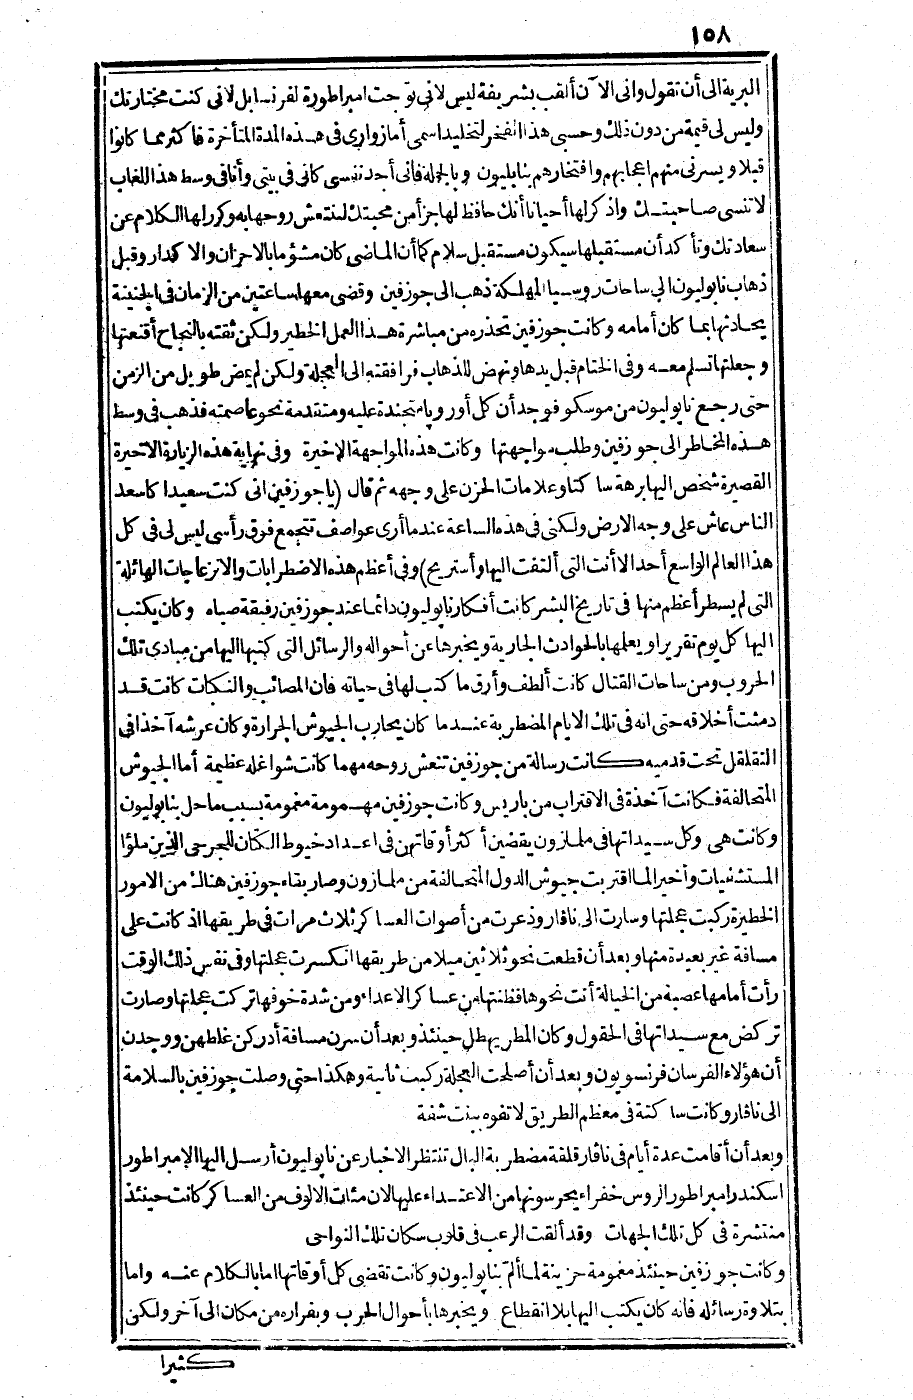 ١٥٨
البرية الى أن تقول وانى الآن ألقب بشريفة ليس لانى توجت امبراطورة لفرنسا بل لانى كنت مختارتك
وليس لى قيمة من دون ذلك وحسبى هذا الفخر لتخليد اسمى أما زوارى فى هذه المدة المتأخرة فا كثر مما كانوا
قبلا ويسرنى منهم اعجابهم وافتخارهم بنابليون وبالجملة فانى أجد نفسى كانى فى بيتى وأنا فى وسط هذا اللغاب
لا تنسى صاحبتك واذ كرلها أحيانا أنك حافظ لها جزأ من محبتك لتنتعش روحها به وكرر لها الكلام عن
سعادتك وتأ كد أن مستقبلها سيكون مستقبل سلام كما أن الماضى كان مشؤما بالاحزان والا كدار وقبل
ذهاب نابوليون الى ساحات روسيا المهلكة ذهب الى جوزفين وقضى معها ساعتين من الزمان فى الجنينة
يحادثها بما كان أمامه وكانت جوزفين تحذره من مباشرة هذا العمل الخطير ولكن ثقته بالنجاح أقنعتها
وجعلتها تسلم معه وفى الختام قبل يدها ونهض للذهاب فرافقته الى العجلة ولكن لم يمض طويل من الزمن
حتى رجع نابوليون من موسكو فوجد أن كل أوروپا متجندة عليه ومتقدمة نحو عاصمته فذهب فى وسط
هذه المخاطر الى جوزفين وطلب مواجهتها وكانت هذه المواجهة الاخيرة وفى نهاية هذه الزيارة الاخيرة
القصيرة شخص اليها برهة سا كتا وعلامات الحزن على وجهه ثم قال (ياجوزفين انى كنت سعيدا كاسعد
الناس عاش على وجه الارض ولكنى فى هذه الساعة عندما أرى عواصف تتجمع فوق رأسى ليس لى فى كل
هذا العالم الواسع أحد الا أنت التى ألتفت اليها وأستريح) وفى أعظم هذه الاضطرابات والانزعاجات الهائلة
التى لم يسطر أعظم منها فى تاريخ البشر كانت أفكار نابوليون دائما عند جوزفين رفيقة صباه وكان يكتب
اليها كل يوم تقريرا ويعلمها بالحوادث الجارية ويخبرها عن أحواله والرسائل التى كتبها اليها من مبادى تلك
الحروب ومن ساحات القتال كانت ألطف وأرق ما كتب لها فى حياته فان المصائب والنكبات كانت قد
دمثت أخلاقه حتى انه فى تلك الايام المضطربة عندما كان يحارب الجيوش الجرارة وكان عرشه آخذا فى
التقلقل تحت قدميه كانت رسالة من جوزفين تنعش روحه مهما كانت شواغله عظيمة أما الجيوش
المتحالفة فكانت آخذة فى الاقتراب من باريس وكانت جوزفين مهمومة مغمومة بسبب ما حل بنابوليون
وكانت هى وكل سيداتها فى ملمازون يقضين أكثر أوقاتهن فى اعداد خيوط الكتان للجرحى الذين ملؤا
المستشفيات وأخيرا لما اقتربت جيوش الدول المتحالفة من ملمازون وصار بقاء جوزفين هناك من الامور
الخطيرة ركبت عجلتها وسارت الى نافار وذعرت من أصوات العسا كر ثلاث مرات فى طريقها اذ كانت على
مسافة غير بعيدة منها وبعد أن قطعت نحو ثلاثين ميلا من طريقها انكسرت عجلتها وفى نفس ذلك الوقت
رأت أمامها عصبة من الخيالة أتت نحوها فظنتها من عساكر الاعداء ومن شدة خوفها تركت عجلتها وصارت
تركض مع سيداتها فى الحقول وكان المطر يهطل حينئذ وبعد أن سرن مسافة أدركن غلطهن ووجدن
أن هؤلاء الفرسان فرنسويون وبعد أن أصلحت العجلة ركبت ثانية وهكذا حتى وصلت جوزفين بالسلامة
الى نافار وكانت سا كتة فى معظم الطريق لا تفوه ببنت شفة
وبعد أن أقامت عدة أيام فى نافار قلقة مضطربة البال تنتظر الاخبار عن نابوليون أرسل اليها الامبراطور
اسكندر امبراطور الروس خفراء يحرسونها من الاعتداء عليها لان مئات الالوف من العسا كر كانت حينئذ
منتشرة فى كل تلك الجهات وقد ألقت الرعب فى قلوب سكان تلك النواحى
وكانت جوزفين حينئذ مغمومة حزينة لما ألم بنابوليون وكانت تقضى كل أوقاتها اما بالكلام عنه واما
بتلاوة رسائله فانه كان يكتب اليها بلا انقطاع ويخبرها بأحوال الحرب وبفراره من مكان الى آخر ولكن
كثيرا